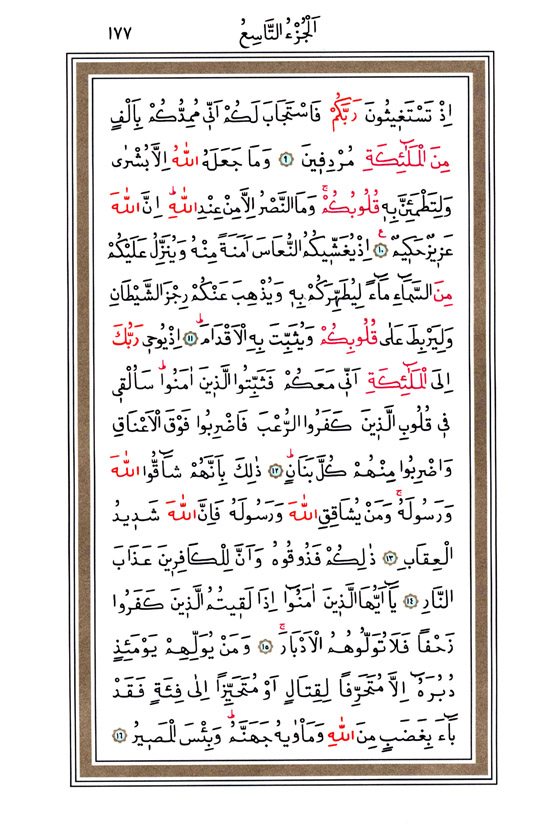 اَلْجُزْءُ التَّاسِعُ ١٧٧
اِذْ تَسْتَغ۪يثُونَ رَبَّكُمْ فَاسْتَجَابَ لَكُمْ اَنّ۪ي مُمِدُّكُمْ بِاَلْفٍ
مِنَ الْمَلٰٓئِكَةِ مُرْدِف۪ينَ ﴿٩﴾ وَمَا جَعَلَهُ اللّٰهُ اِلَّا بُشْرٰى
وَلِتَطْمَئِنَّ بِه۪ قُلُوبُكُمْۚ وَمَا النَّصْرُ اِلَّا مِنْ عِنْدِ اللّٰهِۜ اِنَّ اللّٰهَ
عَز۪يزٌ حَك۪يمٌ۟ ﴿١٠﴾ اِذْ يُغَشّ۪يكُمُ النُّعَاسَ اَمَنَةً مِنْهُ وَيُنَزِّلُ عَلَيْكُمْ
مِنَ السَّمَٓاءِ مَٓاءً لِيُطَهِّرَكُمْ بِه۪ وَيُذْهِبَ عَنْكُمْ رِجْزَ الشَّيْطَانِ
وَلِيَرْبِطَ عَلٰى قُلُوبِكُمْ وَيُثَبِّتَ بِهِ الْاَقْدَامَۜ ﴿١١﴾ اِذْ يُوح۪ي رَبُّكَ
اِلَى الْمَلٰٓئِكَةِ اَنّ۪ي مَعَكُمْ فَثَبِّتُوا الَّذ۪ينَ اٰمَنُواۜ سَاُلْق۪ي
ف۪ي قُلُوبِ الَّذ۪ينَ كَفَرُوا الرُّعْبَ فَاضْرِبُوا فَوْقَ الْاَعْنَاقِ
وَاضْرِبُوا مِنْهُمْ كُلَّ بَنَانٍۜ ﴿١٢﴾ ذٰلِكَ بِاَنَّهُمْ شَٓاقُّوا اللّٰهَ
وَرَسُولَهُۚ وَمَنْ يُشَاقِقِ اللّٰهَ وَرَسُولَهُ فَاِنَّ اللّٰهَ شَد۪يدُ
الْعِقَابِ ﴿١٣﴾ ذٰلِكُمْ فَذُوقُوهُ وَاَنَّ لِلْكَافِر۪ينَ عَذَابَ
النَّارِ ﴿١٤﴾ يَٓا اَيُّهَا الَّذ۪ينَ اٰمَنُٓوا اِذَا لَق۪يتُمُ الَّذ۪ينَ كَفَرُوا
زَحْفًا فَلَا تُوَلُّوهُمُ الْاَدْبَارَۚ ﴿١٥﴾ وَمَنْ يُوَلِّهِمْ يَوْمَئِذٍ
دُبُرَهُٓ اِلَّا مُتَحَرِّفًا لِقِتَالٍ اَوْ مُتَحَيِّزًا اِلٰى فِئَةٍ فَقَدْ
بَٓاءَ بِغَضَبٍ مِنَ اللّٰهِ وَمَأْوٰيهُ جَهَنَّمُۜ وَبِئْسَ الْمَص۪يرُ ﴿١٦﴾